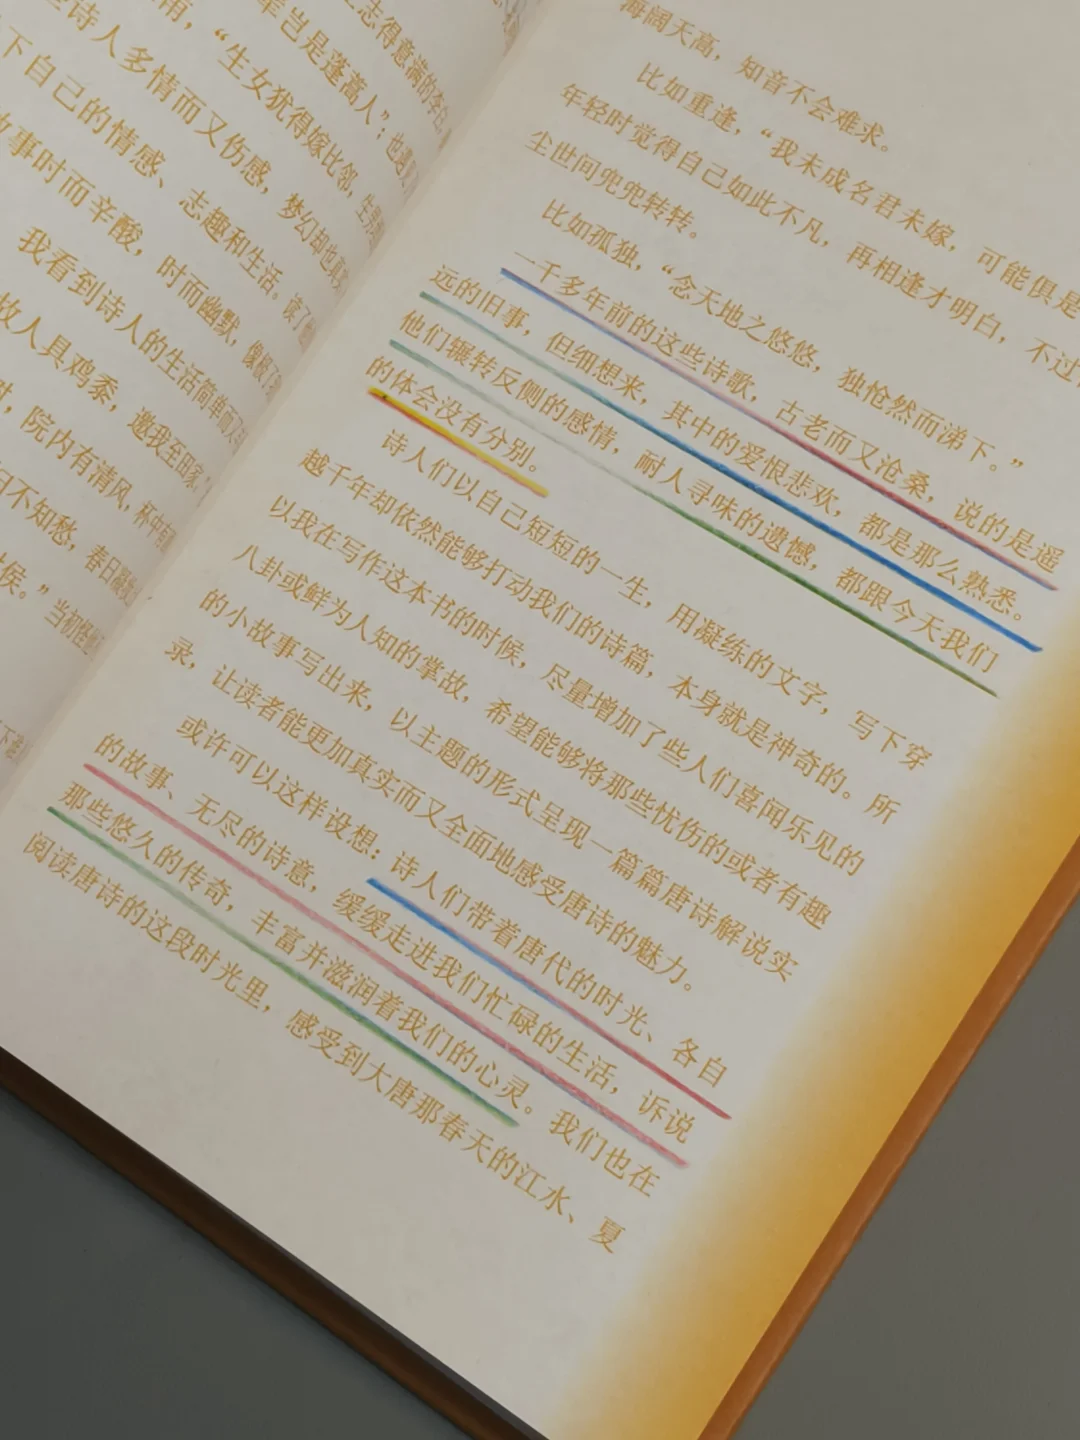 辈岂是蓬蒿人”；也
“生女犹得嫁比邻，生男
诗人多情而又伤感，梦幻却也真
下自己的情感、志趣和生活。读了
故事时而辛酸，时而幽默，像极了
我看到诗人的生活简单而又
故人具鸡黍，邀我至田家。
院内有清风，杯中有
日不知愁，春日
候。”当初
海阔天高，知音不会难求。
比如重逢，“我未成名君未嫁，可能俱是
年轻时觉得自己如此不凡，再相逢才明白，不过
尘世间兜兜转转。
比如孤独，“念天地之悠悠，独怆然而涕下。”
一千多年前的这些诗歌，古老而又沧桑，说的是遥
远的旧事，但细想来，其中的爱恨悲欢，都是那么熟悉。
他们辗转反侧的感情，耐人寻味的遗憾，都跟今天我们
的体会没有分别。
诗人们以自己短短的一生，用凝练的文字，写下穿
越千年却依然能够打动我们的诗篇，本身就是神奇的。所
以我在写作这本书的时候，尽量增加了些人们喜闻乐见的
八卦或鲜为人知的掌故，希望能够将那些忧伤的或者有趣
的小故事写出来，以主题的形式呈现一篇篇唐诗解说实
录，让读者能更加真实而又全面地感受唐诗的魅力。
或许可以这样设想：诗人们带着唐代的时光、各自
的故事、无尽的诗意，缓缓走进我们忙碌的生活，诉说
那些悠久的传奇，丰富并滋润着我们的心灵。我们也在
阅读唐诗的这段时光里，感受到大唐那春天的江水、夏